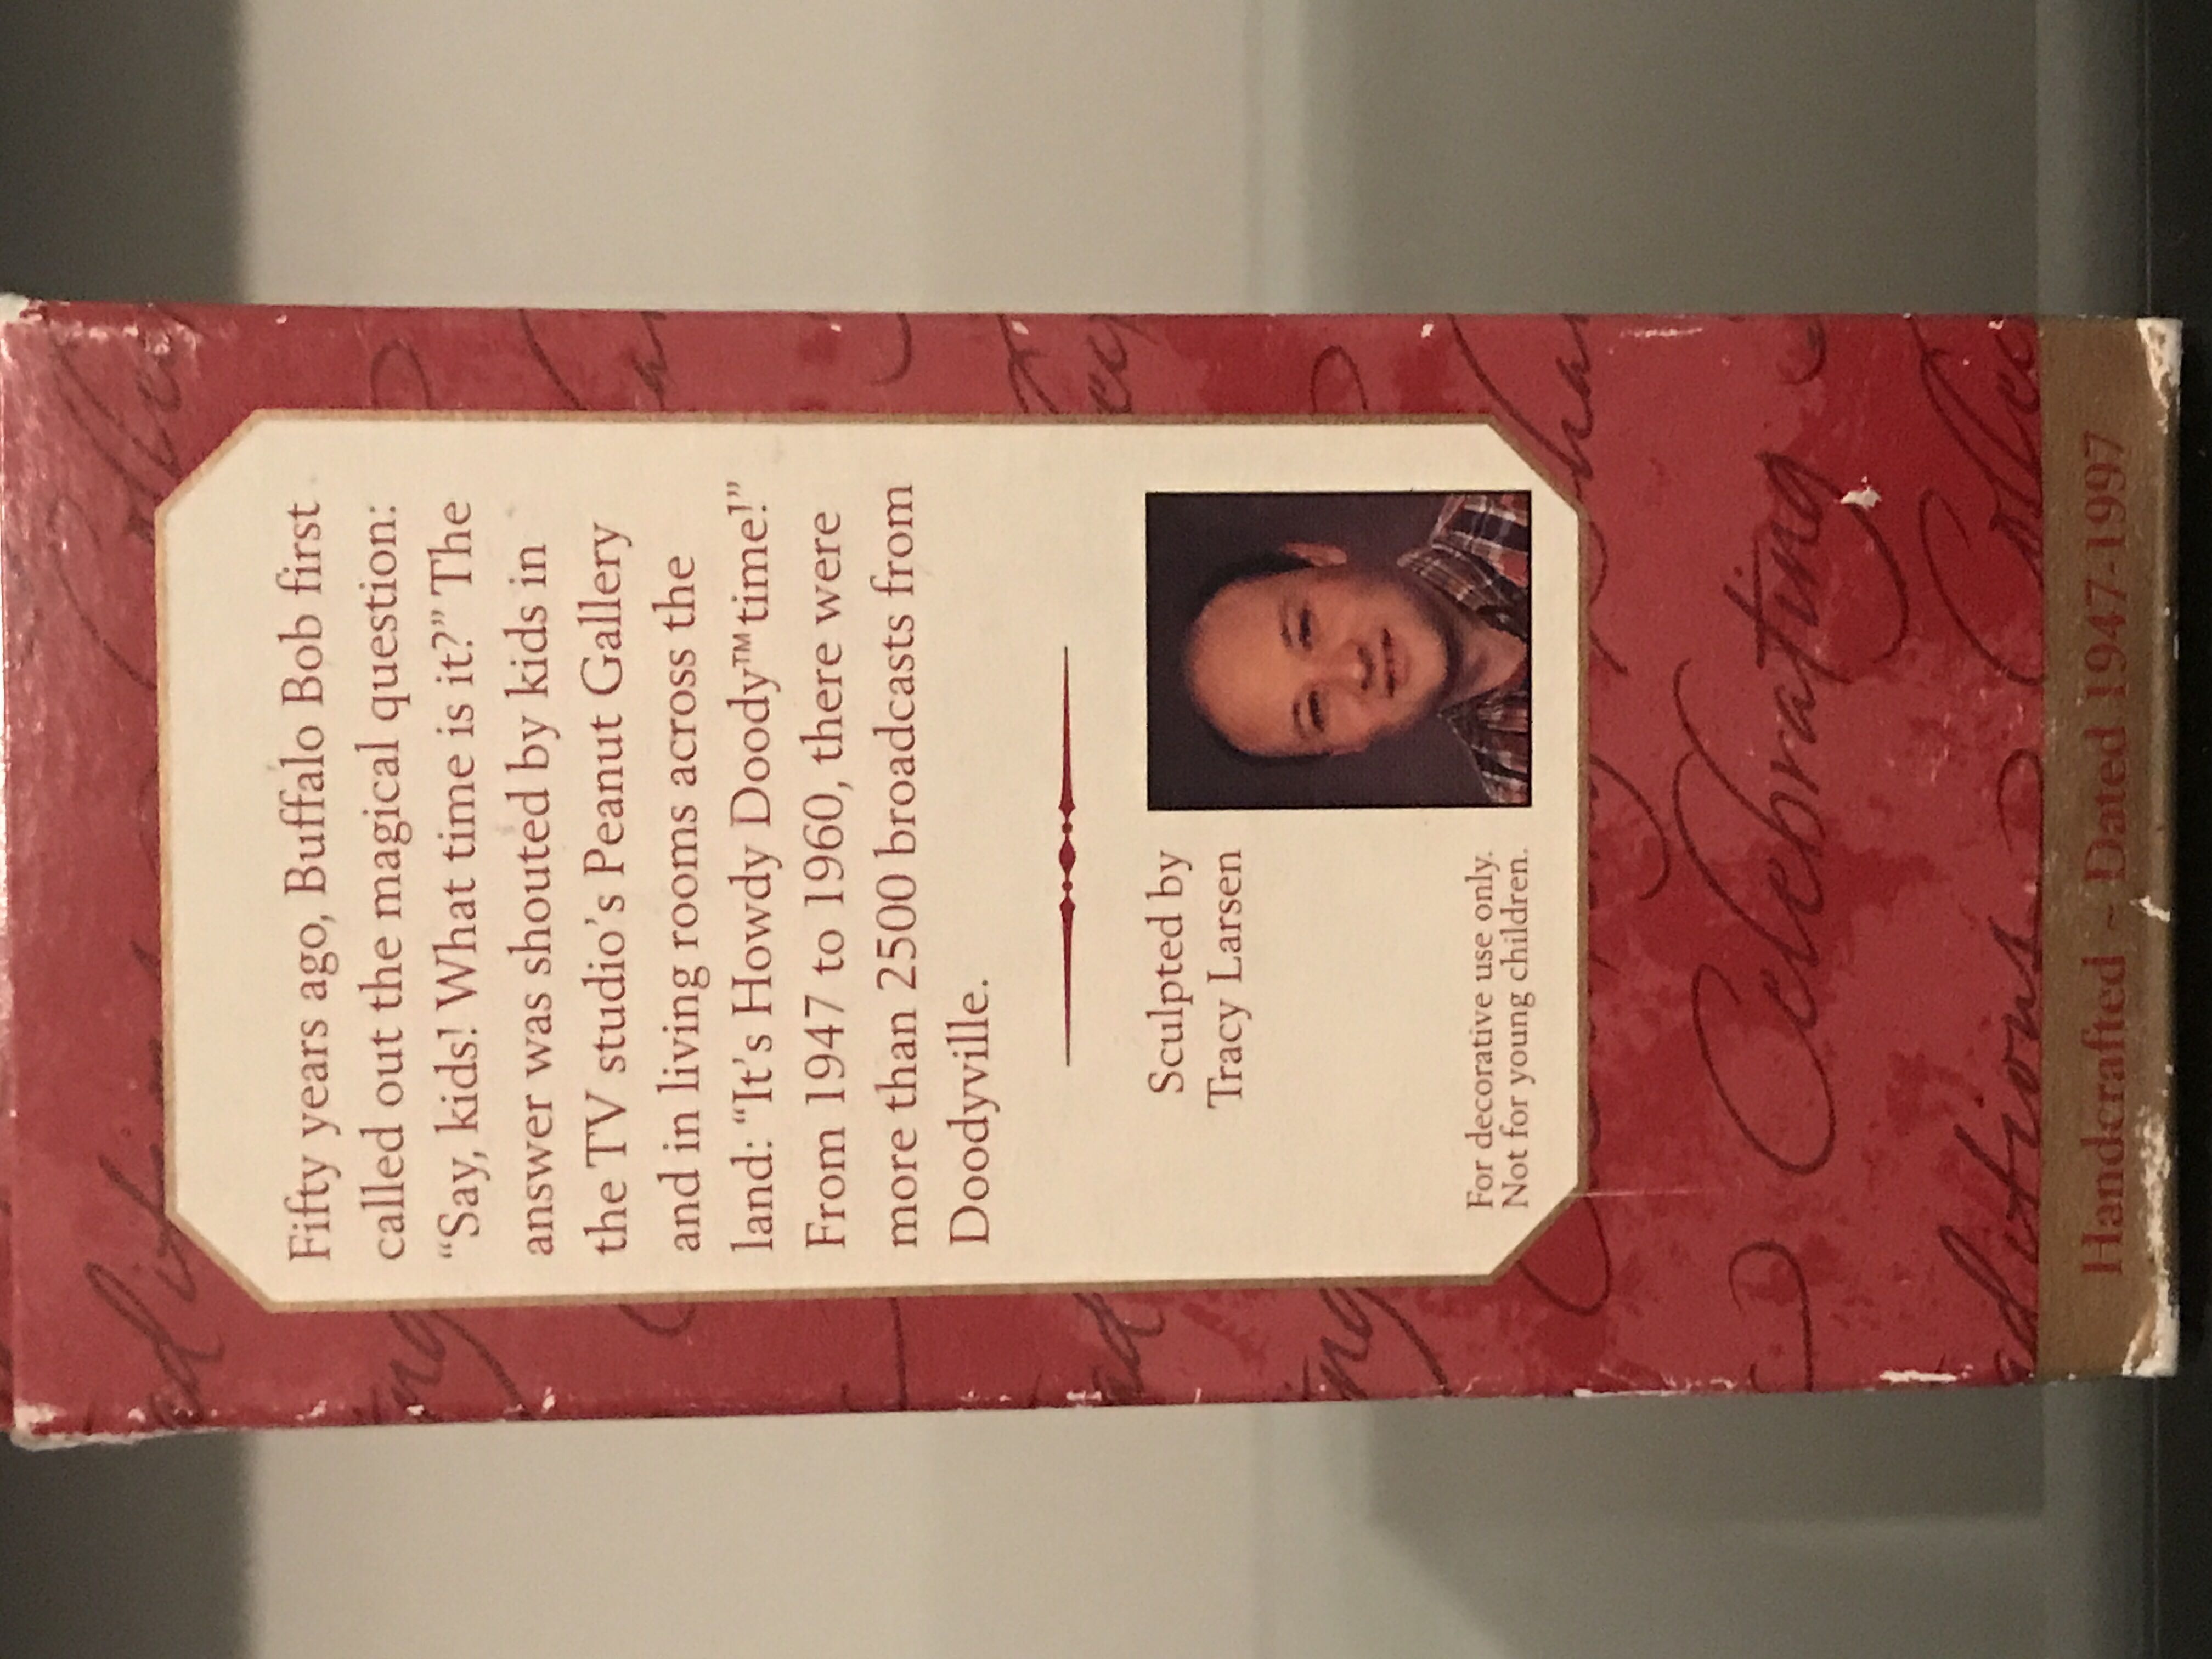 Fifty years ago, Buffalo Bob first
called out the magical question:
“Say, kids! What time is it?” The
answer was shouted by kids in
the TV studio’s Peanut Gallery
and in living rooms across the
land: “It’s Howdy Doody™ time!”
From 1947 to 1960, there were
more than 2500 broadcasts from
Doodyville.
Sculpted by
Tracy Larsen
For decorative use only.
Not for young children.
Celebrating
Handcrafted ~ Dated 1947-1997